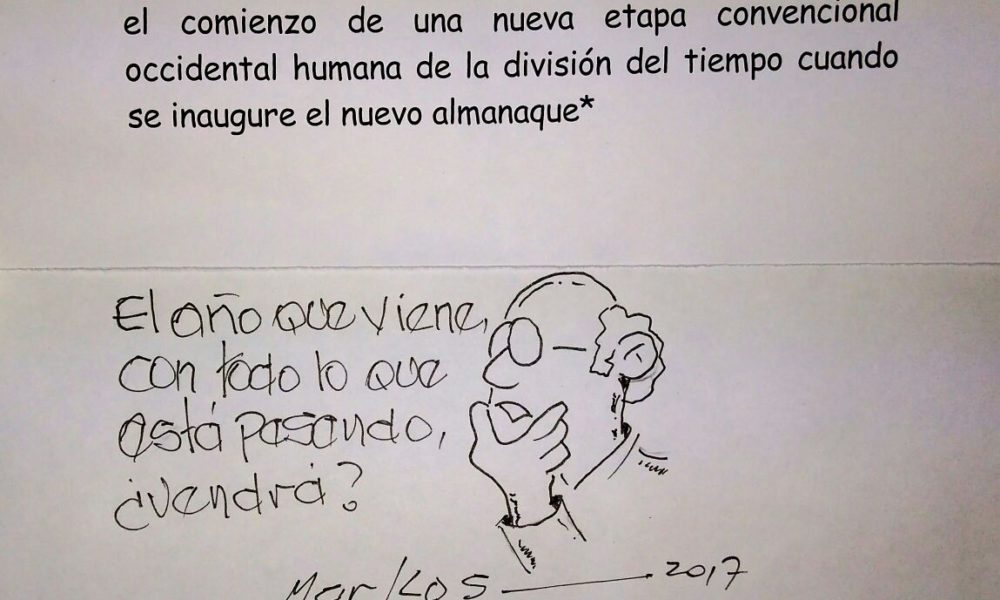 el comienzo de una nueva etapa convencional
occidental humana de la división del tiempo cuando
se inaugure el nuevo almanaque*
El año que viene,
con todo lo que
está pasando,
¿vendrá?
Markos 2017